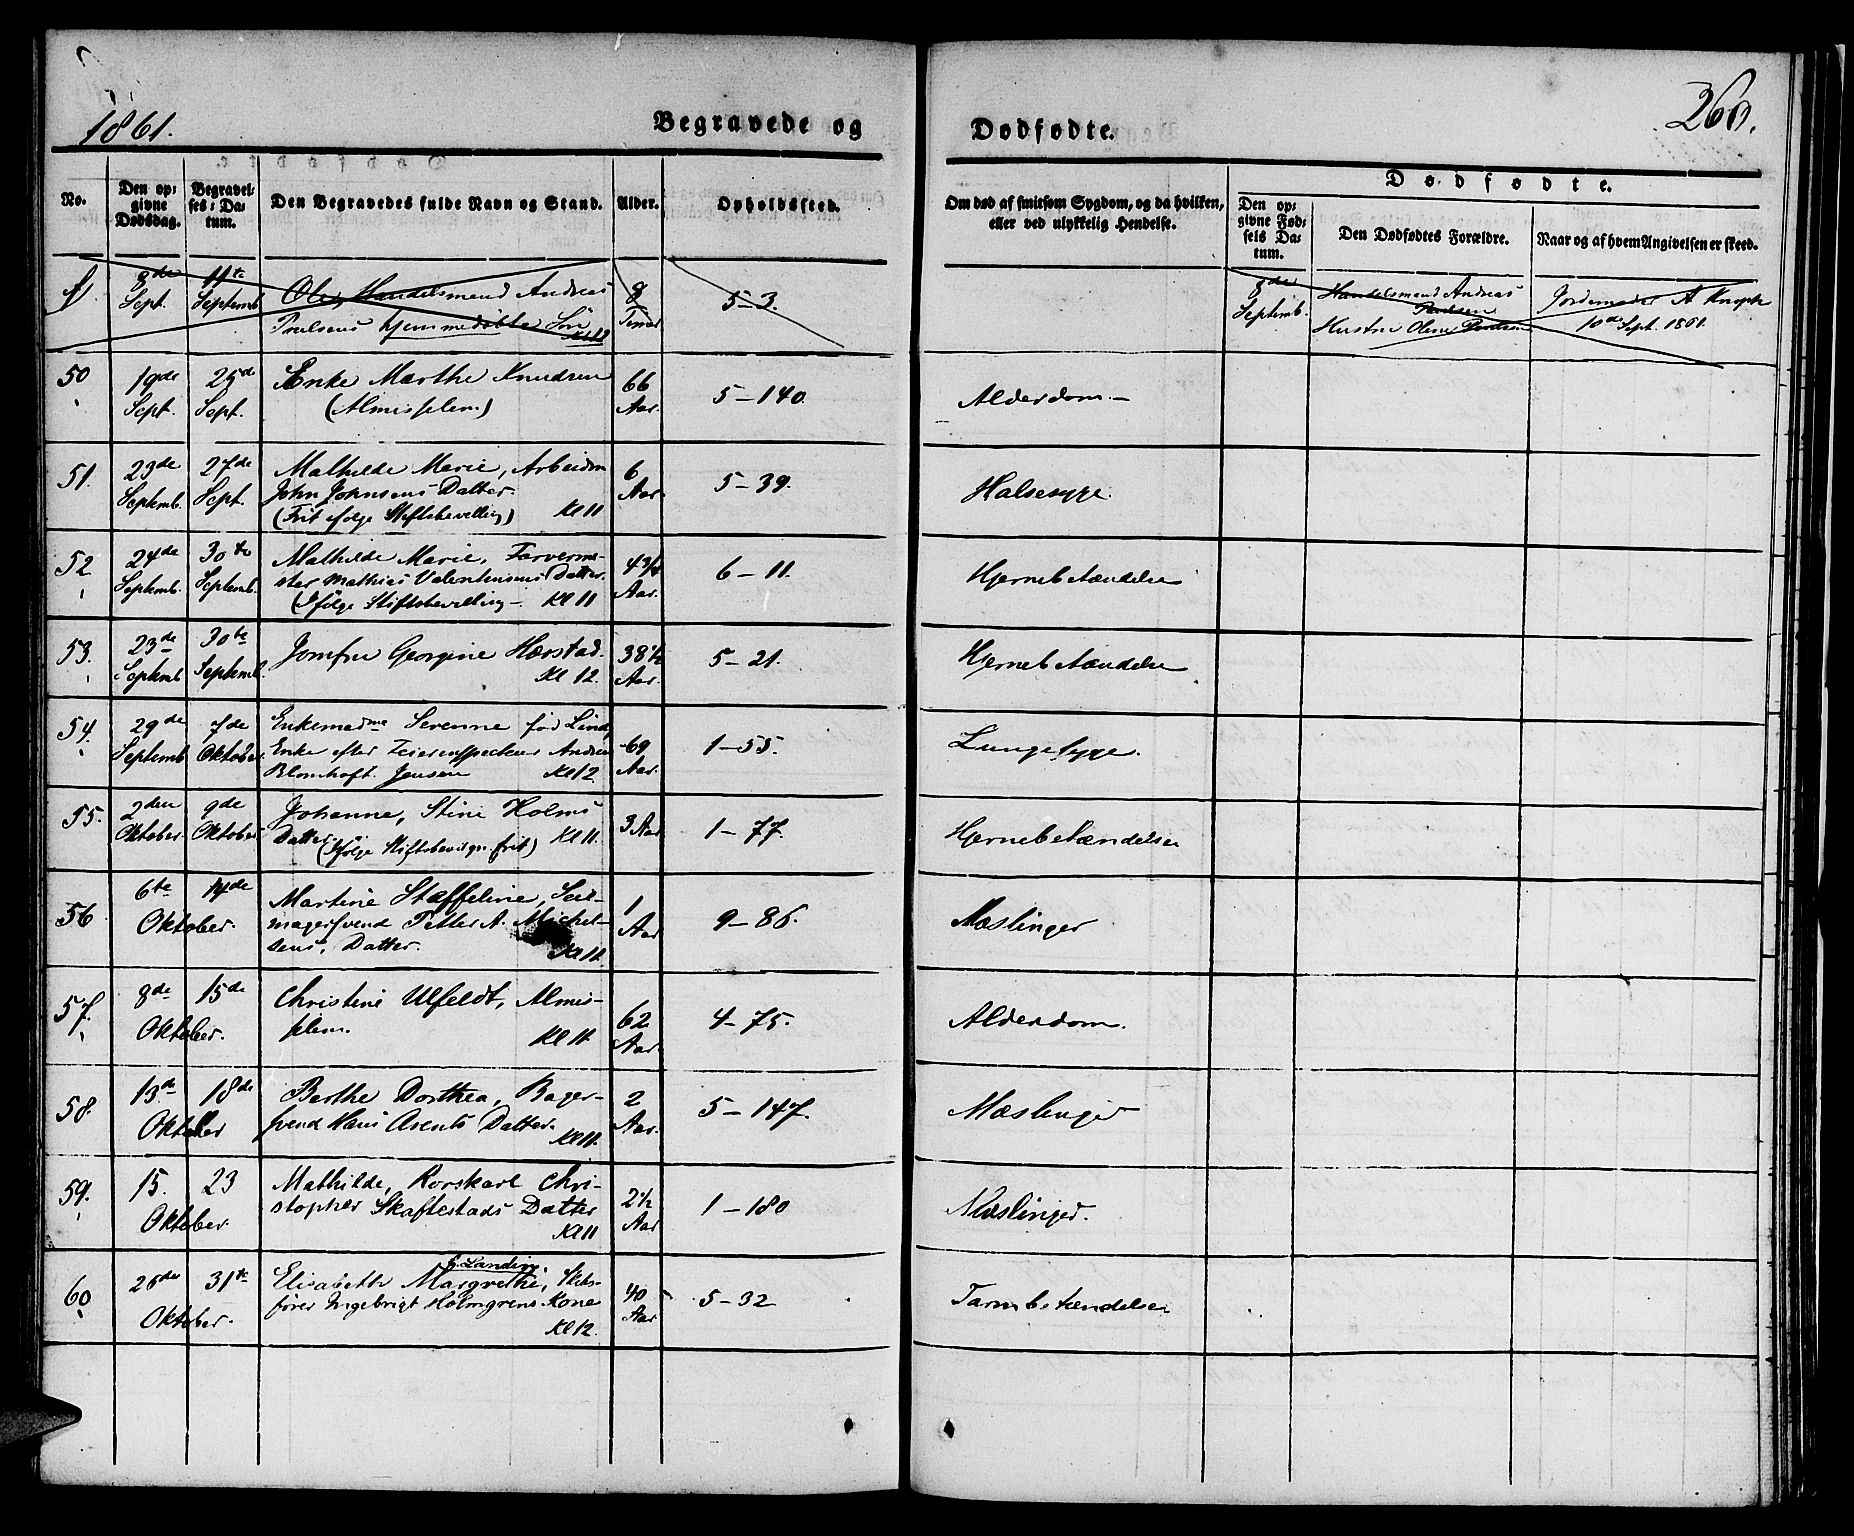 1861.
Begravede og
Dødfødte.
260.
No.
Den op:
givne
Dødsdag.
Begravel:
ses: Da:
tum.
Den Begravedes fulde Navn og Stand.
Alder.
Opholdssted.
Om død af smitsom Sygdom, og da hvilken,
eller ved ulykkelig Hendelse.
Dødfødte.
Den op:
givne Fød:
sels Da:
tum.
Den Dødfødtes Forældre.
Naar og af hvem Angivelsen er skeed.
8de
Sept.
11te
Septemb.
Ole, Handelsmand Andreas
Poulsens hjemmedøbte Søn
Kl 12
8
Timer
5-3.
8de
Septemb.
Handelsmand Andreas
Poulsen
Hustru Oline Poulsen
Jordemoder A Knoph
10de Sept. 1861.
50
19de
Sept.
25de
Sept.
Enke Marthe Knudsen
(Almisslem.)
66
Aar.
5-140.
Alderdom.-
51.
23de
Septemb.
27de
Sept.
Mathilde Marie, Arbeidsm
John Johnsens Datter.
(Frit ifølge Stiftsbevilling) Kl 11
6
Aar.
5-39.
Halsesyge.
52
24de
Septemb.
30te
Septemb.
Mathilde Marie, Farverme-
ster Mathias Valentinsens Datter.
(Ifølge Stiftsbevilling - Kl 11
4 3/4
Aar.
6-11.
Hjernebetændelse
53.
23de
Septemb
30te
Septemb.
Jomfru Georgine Harstad.
Kl 12.
38 1/2
Aar.
5-21.
Hjernebetændelse
54.
29de
Septemb
7de
Oktober.
Enkemadme Serenne fød Lind,
Enke efter Teierinspecteur Andreas
Blomhoft Jensen Kl 12.
69
Aar.
1-55.
Lungesyge.
55.
2den
Oktober.
9de
Oktober
Johanne, Stine Holms
Datter (ifølge Stiftsbevilgn. frit) Kl 11.
3 Aar
1-77.
Hjernebetændelse
56
6te
14de
Oktober.
Martine Staffeline, Seil-
magersvend Petter A. Michel-
sens, Datter.
Kl 11.
1
Aar
9-86.
Mæslinger
57.
8de
15de
Oktober.
Christine Ulfeldt, Almis-
slem.
Kl 11.
62
Aar.
4-75.
Alderdom.
58.
13de
18de
Oktober
Berthe Dorthea, Bager-
svend Hans Arents Datter.
Kl 11.
2
Aar.
5-147.
Mæslinger
59.
15.
23
Oktober.
Mathilde, Rorskarl Chri-
stopher Skaftestads Datter
Kl 11
2 1/2
Aar
1-180
Mæslinger.
60
26de
31te
Oktober.
f. Landin.
Elisabeth Margrethe, Skibs-
fører Ingebrigt Holmgrens Kone
Kl 12.
40
Aar
5-32
Tarmbetændelse